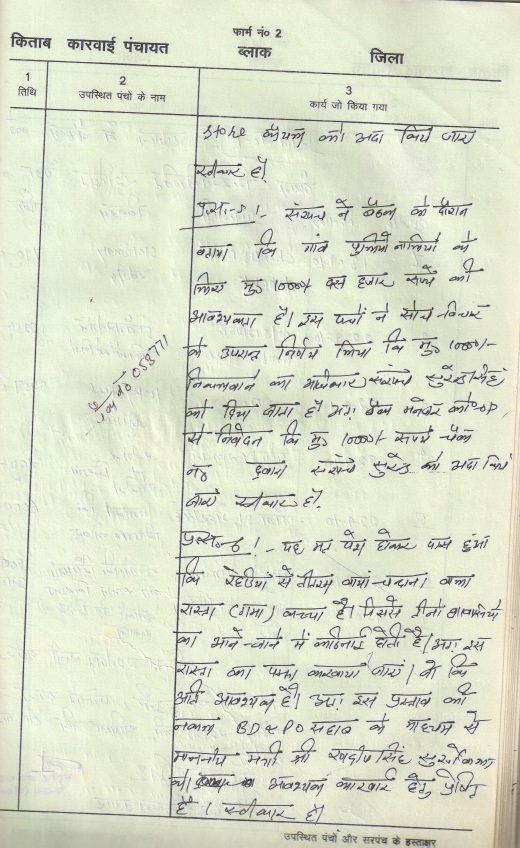 फार्म नं० 2
किताब कारवाई पंचायत ब्लाक जिला
1 2 3
तिथि उपस्थित पंचों के नाम कार्य जो किया गया
को अदा किये जाए
स्वीकार है।
प्रस्ता सरपंच ने बैठक के दौरान
बताया कि गांव पुलियों नालियों के
लिए मु० 10000/- दस हजार रूपये की
आवश्यकता है। इस पंचों ने सोच-विचार
के उपरान्त निर्णय लिया कि मु० 10000/-
निकलवाने का अधिकार सरपंच सुरेन्द्र सिंह
को दिया जाता है अतः बैंक मैनेजर
से निवेदन कि मु० 10000/- रूपये चैक
न० द्वारा सरपंच सुरेन्द्र को अदा किये
जाए स्वीकार है।
चैक न० 053771
यह मत पेश होकर पास हुआ
कि से वाला
रास्ता (गामा) कच्चा है। जिससे
का आने-जाने में कठिनाई होती है। अतः इस
रास्ता को पक्का करवाया जाए। जो कि
अति आवश्यक है। अतः इस प्रस्ताव की
नकल BD&PO साहब के माध्यम से
माननीय मंत्री श्री रणदीप सिंह सुरजेवाला
को आवश्यक कार्यवाई हेतु प्रेषित
है। स्वीकार है।
उपस्थित पंचों और सरपंच के हस्ताक्षर